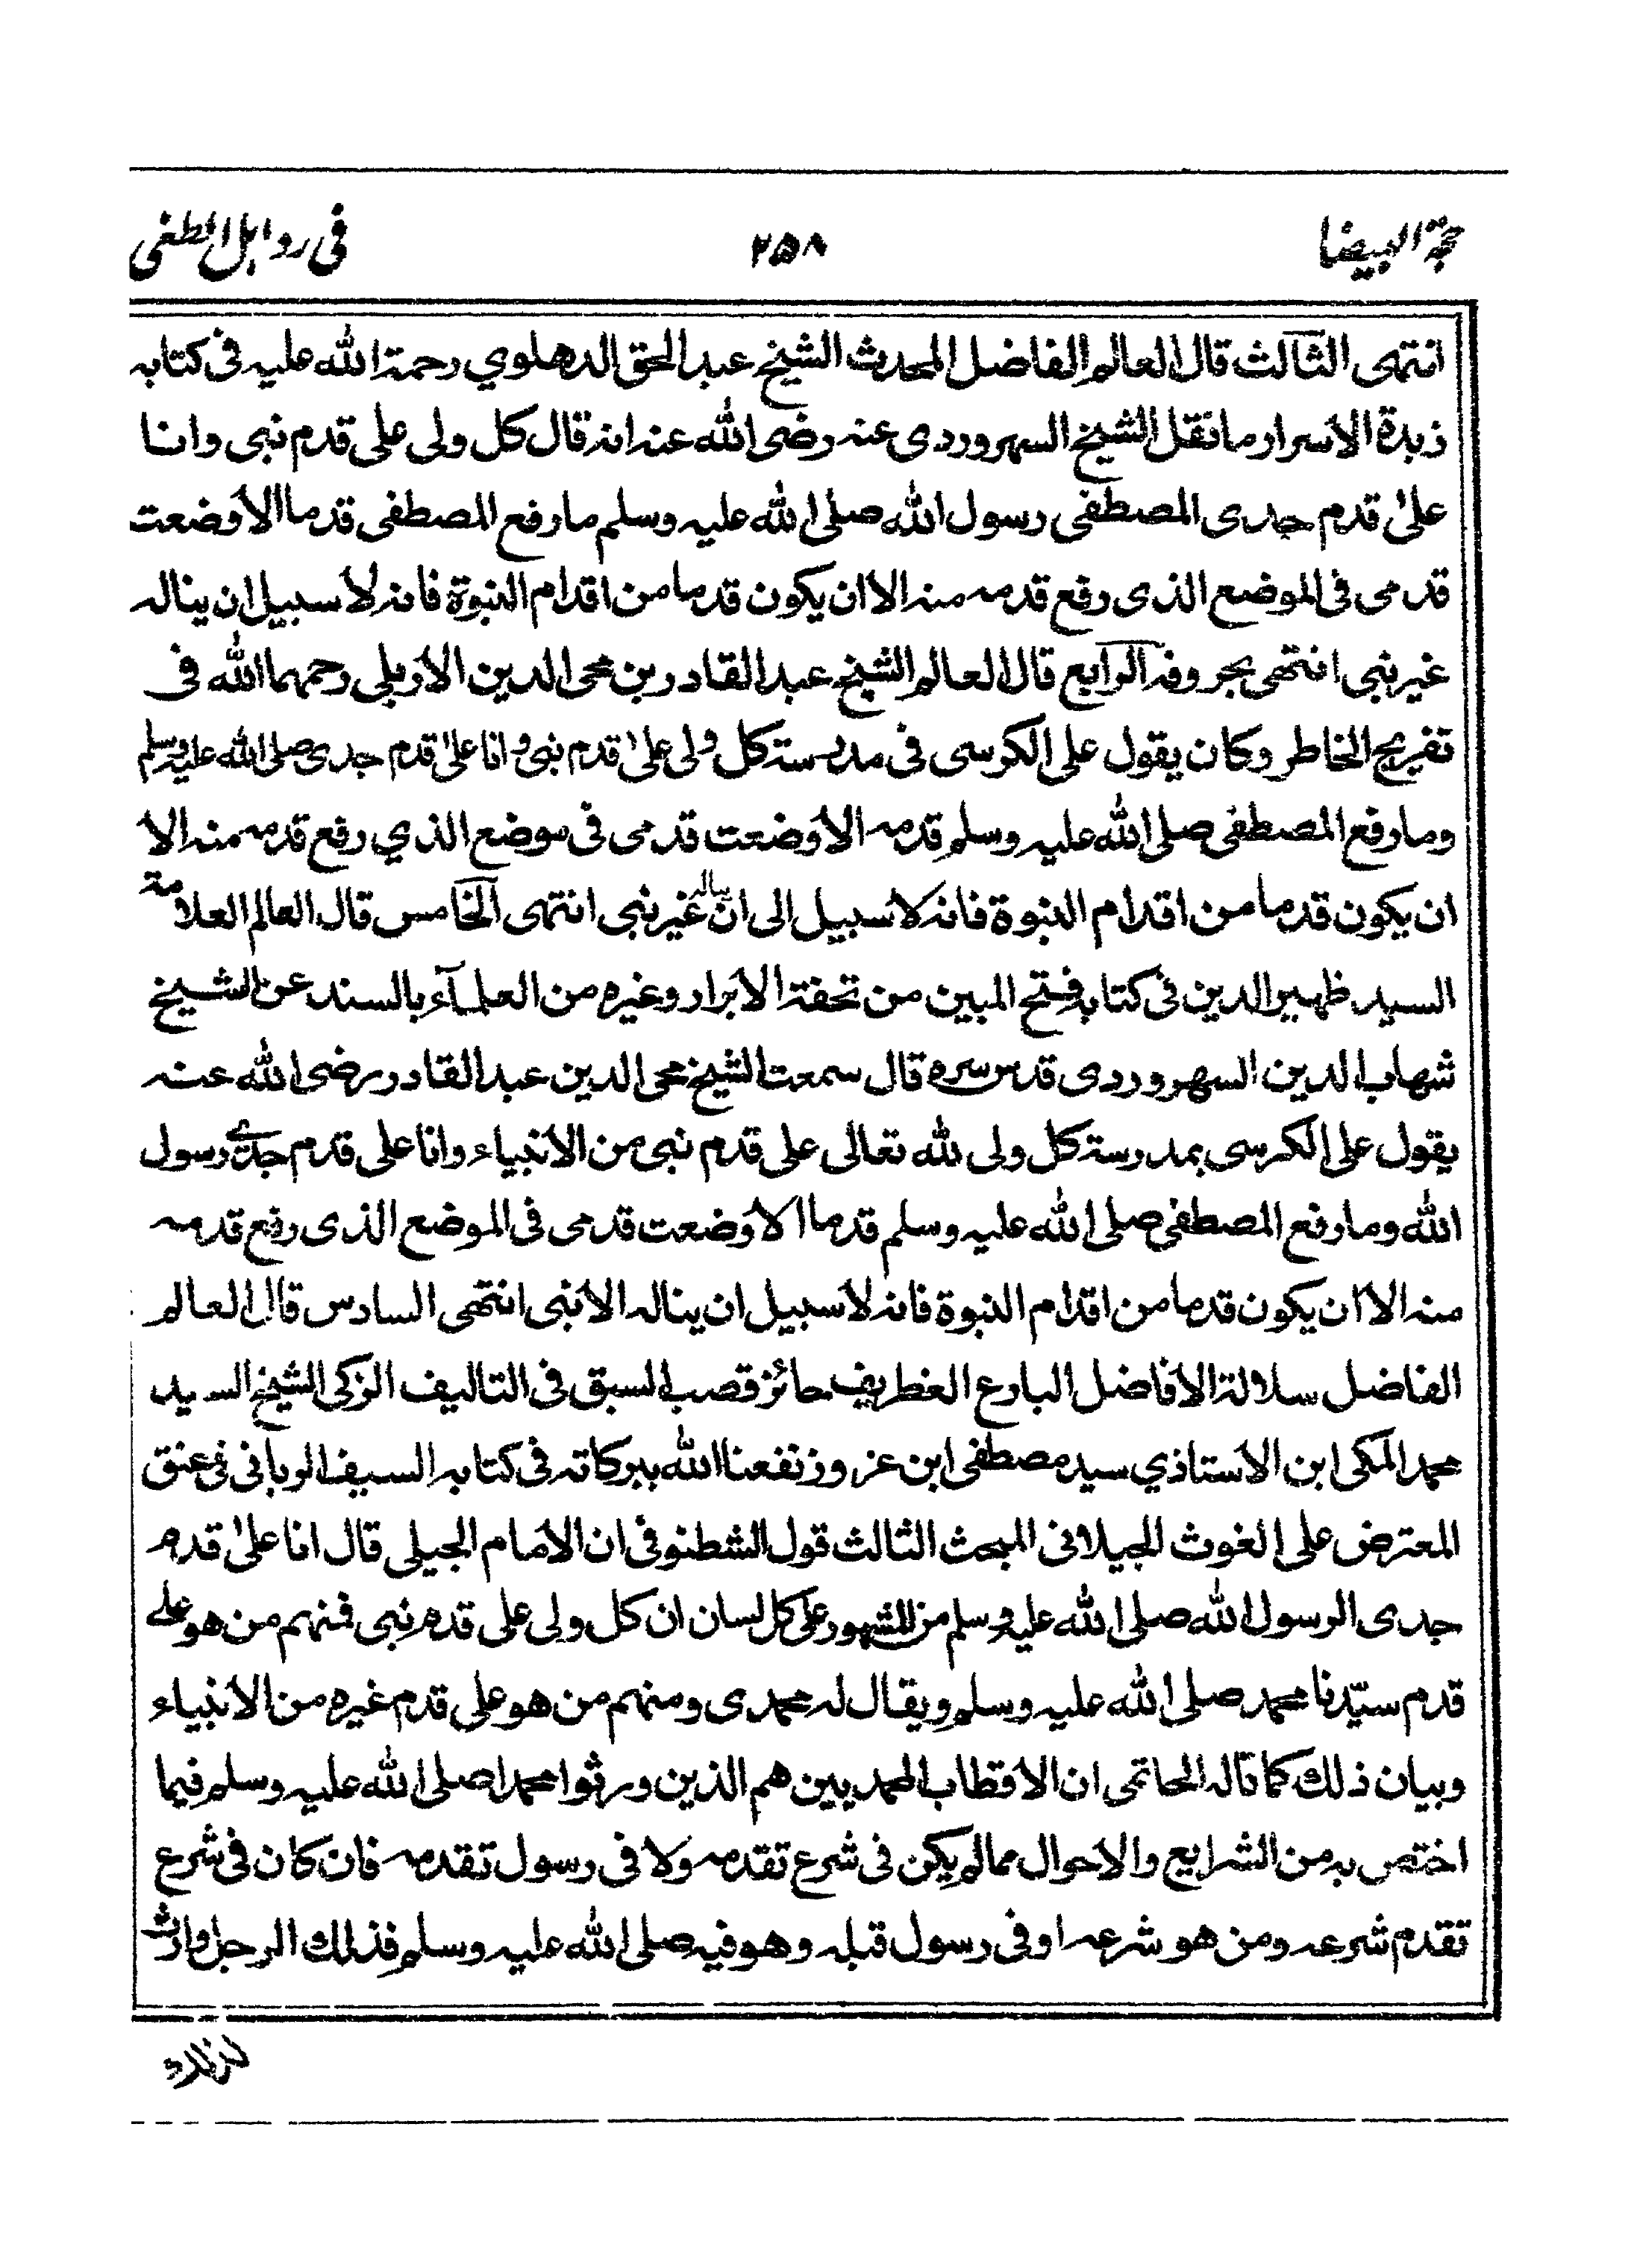 حجة البيضا ٢٥٨ فى رد اهل الطغى
انتهى الثالث قال العالم الفاضل المحدث الشيخ عبد الحق الدهلوي رحمة الله عليه فى كتابه
زبدة الاسرار ما نقل الشيخ السهروردى عنه رضى الله عنه انه قال كل ولى على قدم نبى وانا
على قدم جدى المصطفى رسول الله صلى الله عليه وسلم ما رفع المصطفى قدما الا وضعت
قدمى فى الموضع الذى رفع قدمه منه الا ان يكون قدما من اقدام النبوة فانه لا سبيل ان يناله
غير نبى انتهى بحروفه الرابع قال العالم الشيخ عبد القادر بن محى الدين الاربلى رحمهما الله فى
تفريح الخاطر وكان يقول على الكرسى فى مدرسته كل ولى على قدم نبى وانا على قدم جدى صلى الله عليه وسلم
وما رفع المصطفى صلى الله عليه وسلم قدمه الا وضعت قدمى فى موضع الذي رفع قدمه منه الا
ان يكون قدما من اقدام النبوة فانه لا سبيل الى ان يناله غير نبى انتهى الخامس قال العالم العلامة
السيد ظهير الدين فى كتابه فتح المبين من تحفة الابرار وغيره من العلمآء بالسند عن الشيخ
شهاب الدين السهروردى قدس سره قال سمعت الشيخ محى الدين عبد القادر رضى الله عنه
يقول على الكرسى بمدرسته كل ولى لله تعالى على قدم نبى من الانبياء وانا على قدم جدى رسول
الله وما رفع المصطفى صلى الله عليه وسلم قدما الا وضعت قدمى فى الموضع الذى رفع قدمه
منه الا ان يكون قدما من اقدام النبوة فانه لا سبيل ان يناله الا نبى انتهى السادس قال العالم
الفاضل سلالة الافاضل البارع الغطريف حائز قصب السبق فى التاليف الزكى الشيخ السيد
محمد المكى ابن الاستاذي سيد مصطفى ابن عزوز نفعنا الله ببركاته فى كتابه السيف الربانى فى عنق
المعترض على الغوث الجيلانى المبحث الثالث قول الشطنوفى ان الامام الجيلى قال انا على قدم
جدى الرسول الله صلى الله عليه وسلم من المشهور على كل لسان ان كل ولى على قدم نبى فمنهم من هو على
قدم سيّدنا محمد صلى الله عليه وسلم ويقال له محمدى ومنهم من هو على قدم غيره من الانبياء
وبيان ذلك كما قاله الحاتمى ان الاقطاب المحمديين هم الذين ورثوا محمدا صلى الله عليه وسلم فيما
اختص به من الشرايع والاحوال مما لم يكن فى شرع تقدمه ولا فى رسول تقدمه فان كان فى شرع
تقدم شرعه ومن هو شرعه او فى رسول قبله وهو فيه صلى الله عليه وسلم فذلك الرجل وارث